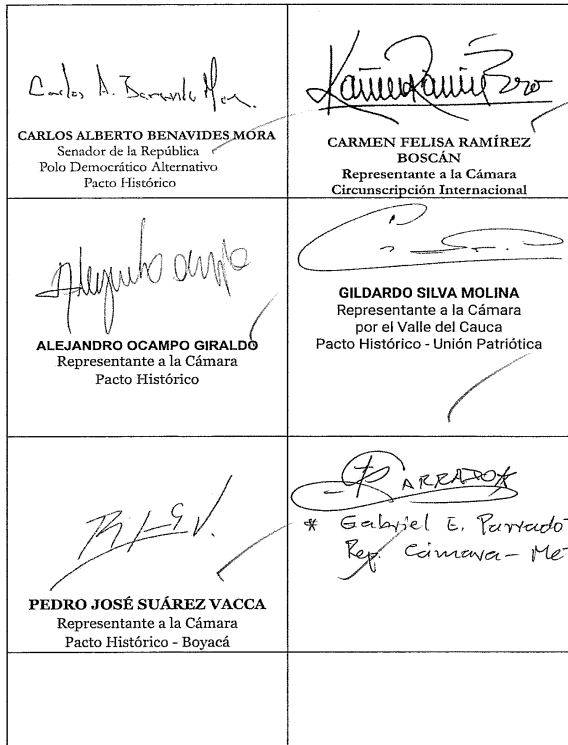 Carlos A. Benavides Mora
CARLOS ALBERTO BENAVIDES MORA
Senador de la República
Polo Democrático Alternativo
Pacto Histórico
CARMEN FELISA RAMÍREZ
BOSCÁN
Representante a la Cámara
Circunscripción Internacional
Alejandro Ocampo
ALEJANDRO OCAMPO GIRALDO
Representante a la Cámara
Pacto Histórico
GILDARDO SILVA MOLINA
Representante a la Cámara
por el Valle del Cauca
Pacto Histórico - Unión Patriótica
PEDRO JOSÉ SUÁREZ VACCA
Representante a la Cámara
Pacto Histórico - Boyacá
PARRADO*
* Gabriel E. Parrado
Rep. Cámara - Me